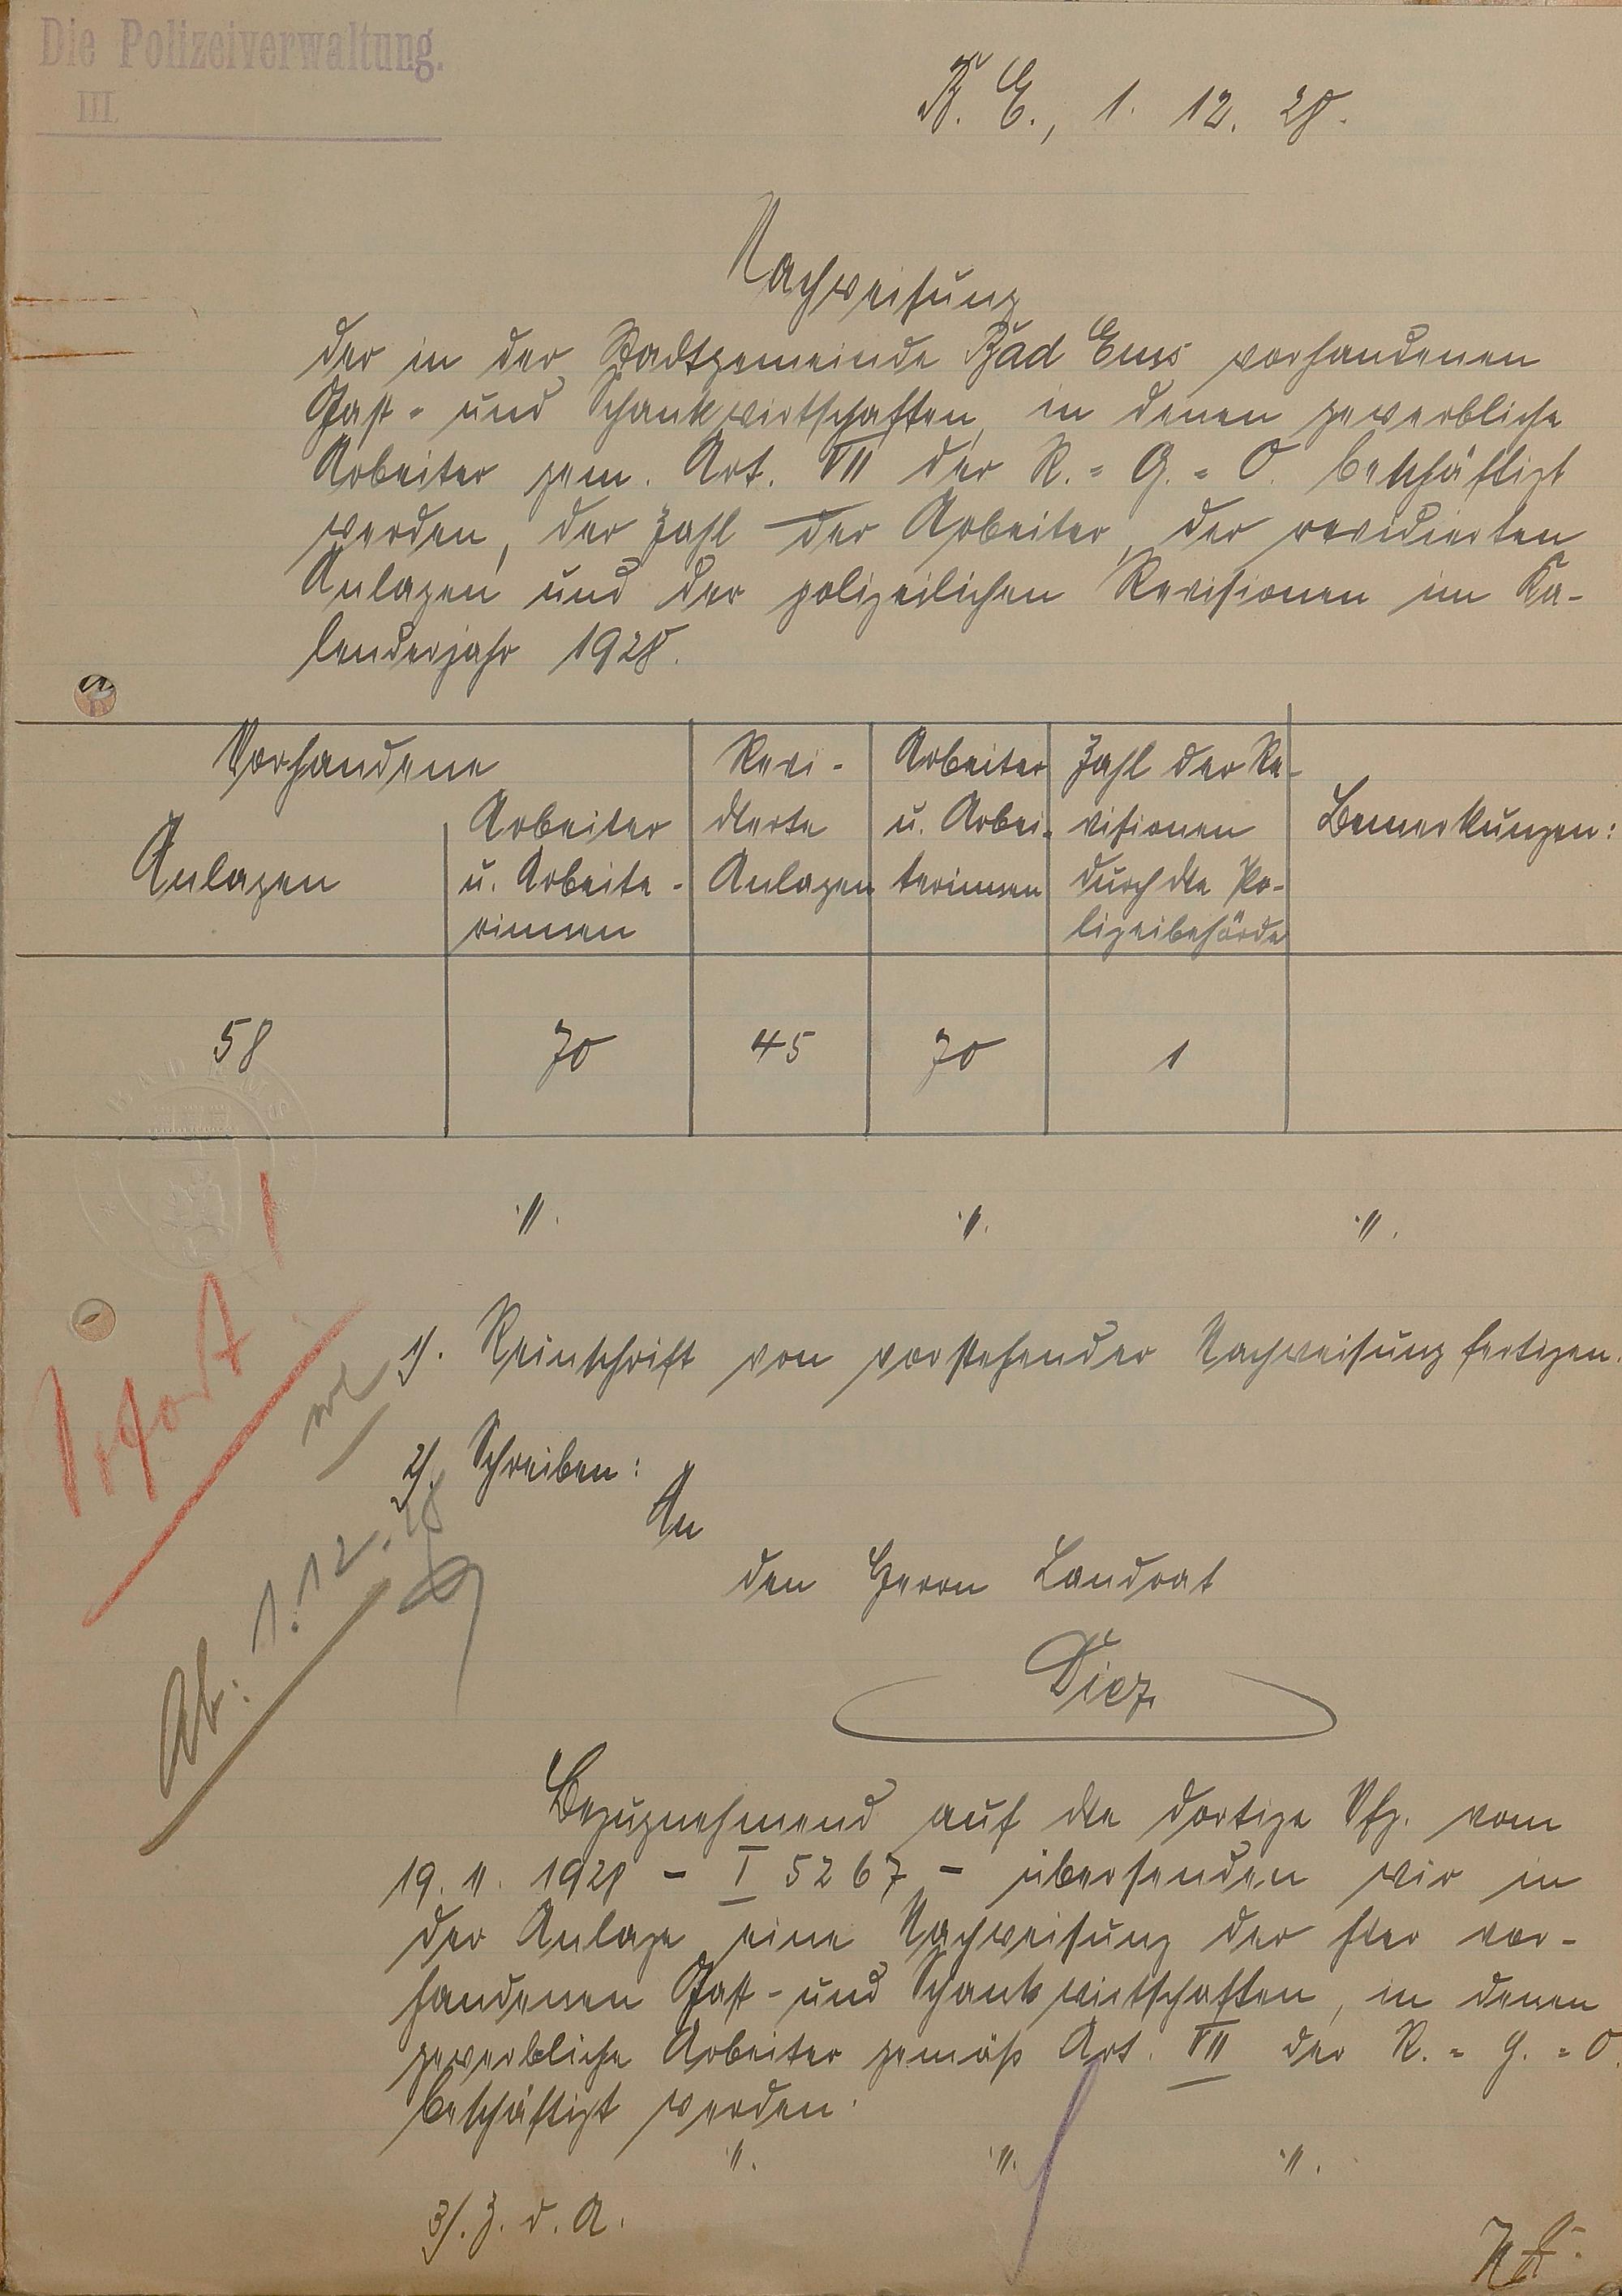 Die Polizeiverwaltung.
III.
B. E., 1. 12. 28.
Nachweisung
der in der Stadtgemeinde Bad Ems vorhandenen
Gast- und Schankwirtschaften, in denen gewerbliche
Arbeiter gem. Art. VII der R.= G.= O. beschäftigt
werden, der Zahl der Arbeiter, der revidierten
Anlagen und der polizeilichen Revisionen im Ka-
lenderjahr 1928.
Vorhandene
Anlagen
Arbeiter
u. Arbeite-
rinnen
Revi-
dierte
Anlagen
Arbeiter
u. Arbei-
terinnen
Zahl der Re-
visionen
durch die Po-
lizeibehörde
Bemerkungen:
58 70 45 70 1
·/. ·/. ·/.
Sofort!
1/. Reinschrift von vorstehender Nachweisung fertigen.
2/. Schreiben:
Ab: 1.12.28
An
den Herrn Landrat
Diez
Bezugnehmend auf die dortige Vfg. vom
19. 11. 1928 - I 5267 - übersenden wir in
der Anlage eine Nachweisung der hier vor-
handenen Gast- und Schankwirtschaften, in denen
gewerbliche Arbeiter gemäß Art. VII der R.= G.= O.
beschäftigt werden.
·/. ·/. ·/.
3/. Z. d. A.